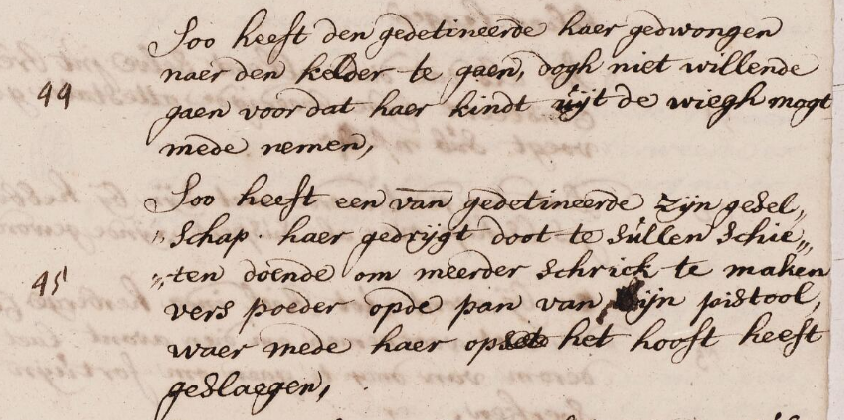 Soo heeft den gedetineerde haer gedwongen
naer den kelder te gaen, dogh niet willende
44 gaen voor dat haer kindt uijt de wiegh mogt
mede nemen,
Soo heeft een van gedetineerde zijn gesel„
„schap haer gedrijgt doot te sullen schie„
45 „ten doende om meerder schrick te maken
vers poeder opde pan van zijn pistool,
waer mede haer op het hooft heeft
geslaegen,